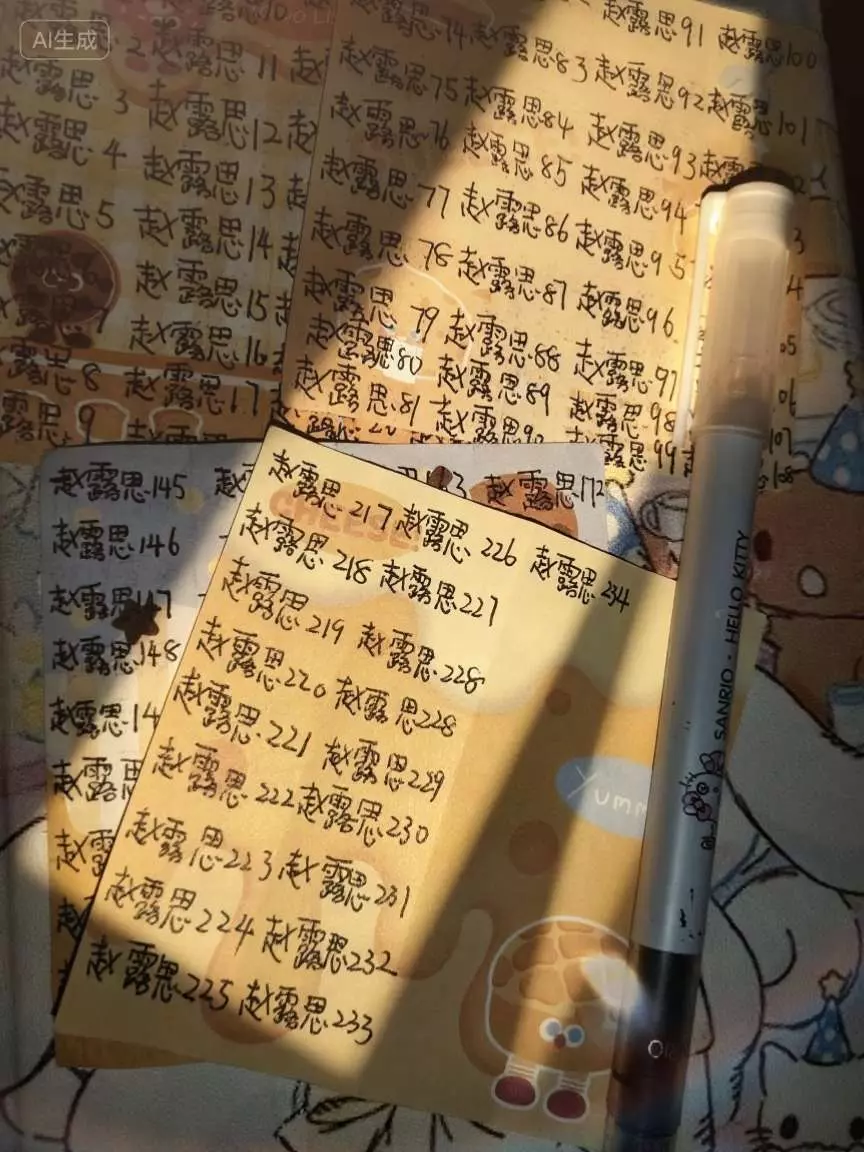 AI生成
赵露思 11
赵露思 3 赵露思12
赵露思 4 赵露思13
赵露思5 赵露思14
赵露思15
赵露思16
赵露思8 赵露思17
9
赵露思91 赵露思100
赵露思83 赵露思92 赵露思101
赵露思75 赵露思84 赵露思93
赵露思76 赵露思85 赵露思94
赵露思77 赵露思86 赵露思95
赵露思78 赵露思87 赵露思96
赵露思79 赵露思88 赵露思97
赵露思80 赵露思89 赵露思98
赵露思81 赵露思90 赵露思99
赵露思145
赵露思172
赵露思146
赵露思147
赵露思148
赵露思14
赵露思217 赵露思226 赵露思234
赵露思218 赵露思227
赵露思219 赵露思228
赵露思220 赵露思228
赵露思221 赵露思229
赵露思222 赵露思230
赵露思223 赵露思231
赵露思224 赵露思232
赵露思225 赵露思233
CHEESE
Yumm
SANRIO · HELLO KITTY